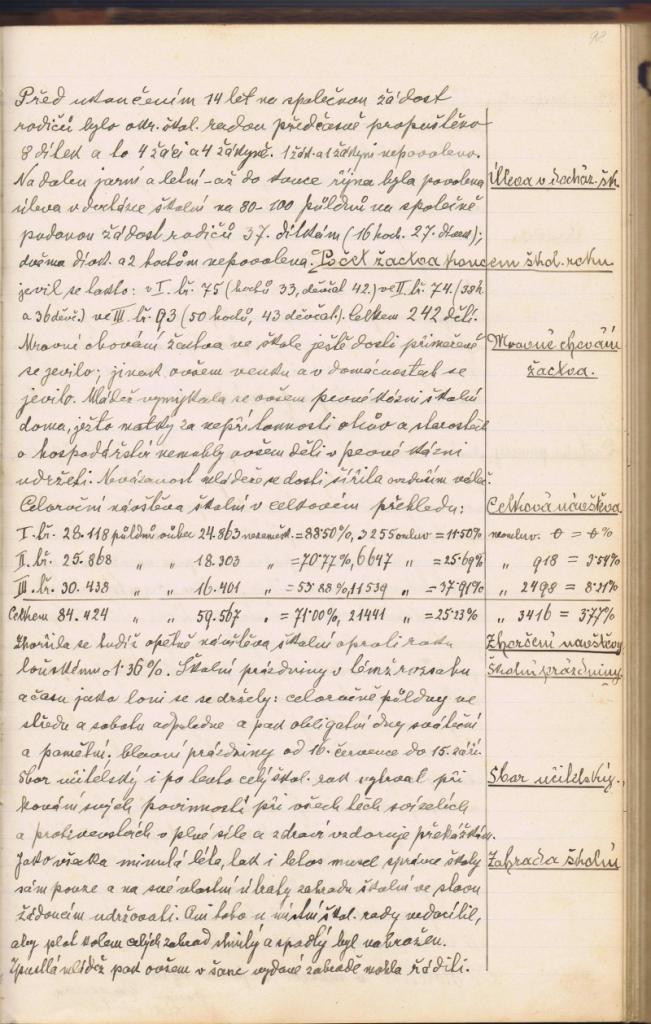 98
Před ukončením 14 let na společnou žádost
rodičů bylo okr. škol. radou předčasně propuštěno
8 dítek a to 4 žáci a 4 žákyně. 1 žák. a 1 žákyni nepovoleno.
Na dobu jarní a letní – až do konce října byla povolena Úleva v docház. šk.
úleva v docházce školní na 80-100 půldnů na společně
podanou žádost rodičů 37. dítkám (16 hoch. 27. );
dvěma a 2 hochům nepovolena. Počet žactva koncem škol. roku
jevil se takto: v I. tř. 75 (hochů 33, děvčat 42.) ve II. tř. 74. (38 h.
a 36 děvč.) ve III tř. 93 (50 hochů, 43 děvčat). Celkem 242 dětí.
Mravní chování žactva ve škole ještě dosti přiměřené Mravné chování
se jevilo; jinak ovšem venku a v domácnostech se žactva.
jevilo. Mládež vymykala se ovšem pevné kázni školní
doma, ježto matky za nepřítomnosti otců a starostech
o hospodářství nemohly ovšem děti v pevné kázni
udržeti. Nevázanost mládeže se dosti šířila
Celoroční návštěva školní v celkovém přehledu: Celková návštěva
I. tř. 28.118 půldnů 24.863 =88·50%, 3255 omluv =11·50% neomluv. 0 = 0%
II. tř. 25.868 „ „ 18.303 „ =70·77%, 6647 „ =25·69% „ 918 = 3·54%
III. tř. 30.438 „ „ 16.401 „ =53·88% 11539 „ =37·91% „ 2498 = 8·21%
Celkem 84.424 „ „ 59.567 „ =71·00%, 21441 „ =25·23% „ 3416 = 3·77%
Zhoršila se tudíž opětně návštěva školní oproti roku Zhoršení návštěvy
loňskému o 1·36%. Školní prázdniny v témž rozsahu Školní prázdniny.
a času jako loni se se držely: celoročně půldny ve
středu a sobotu odpoledne a pak obligátní dny sváteční
a památní. hlavní prázdniny od 16. července do 15. září.
Sbor učitelský i po tento celý škol. rok vytrval při Sbor učitelský.
konání svých povinností při všech těch svízelích
a protivenstvích v plné síle a zdraví vzdoruje překážkám.
Jako všaka minulá léta, tak i letos musel správce školy Zahrada školní
sám pouze a na své vlastní útraty zahradu školní ve stavu
žádoucím udržovati. Ani toho u místní škol. rady nedocílil,
aby plot kolem celých zahrad shnilý a spadlý byl nahražen.
Zpustlá mládež pak ovšem v šanc vydané zahradě mohla řáditi.